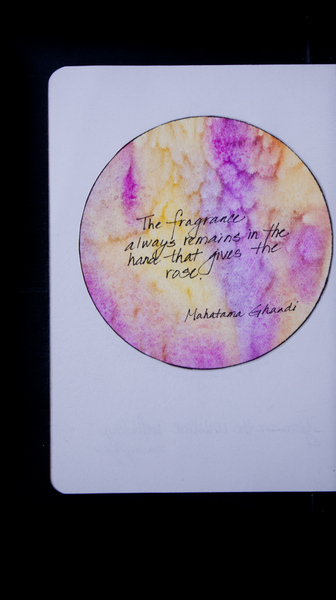 The fragrance
always remains in the
hand that gives the
rose.
Mahatama Ghandi